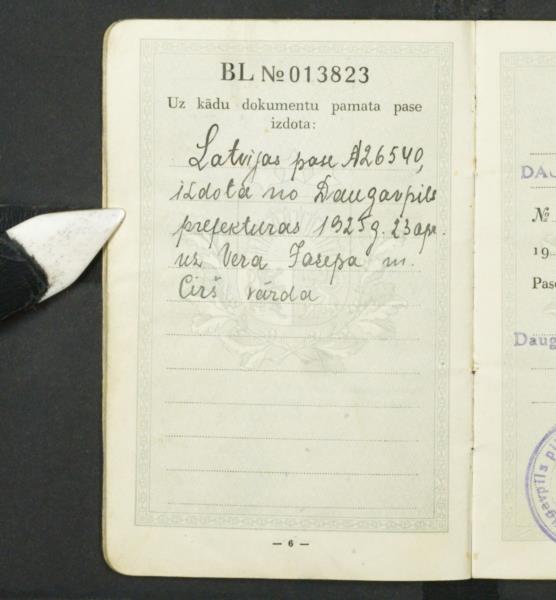 BL № 013823
Uz kādu dokumentu pamata pase
izdota:
Latvijas pase A26540,
izdota no Daugavpils
prefekturas 1925g. 23 apr.
uz Vera Jazepa m.
Cirš vārda
— 6 —
DAU
№
19
Pase
Daug